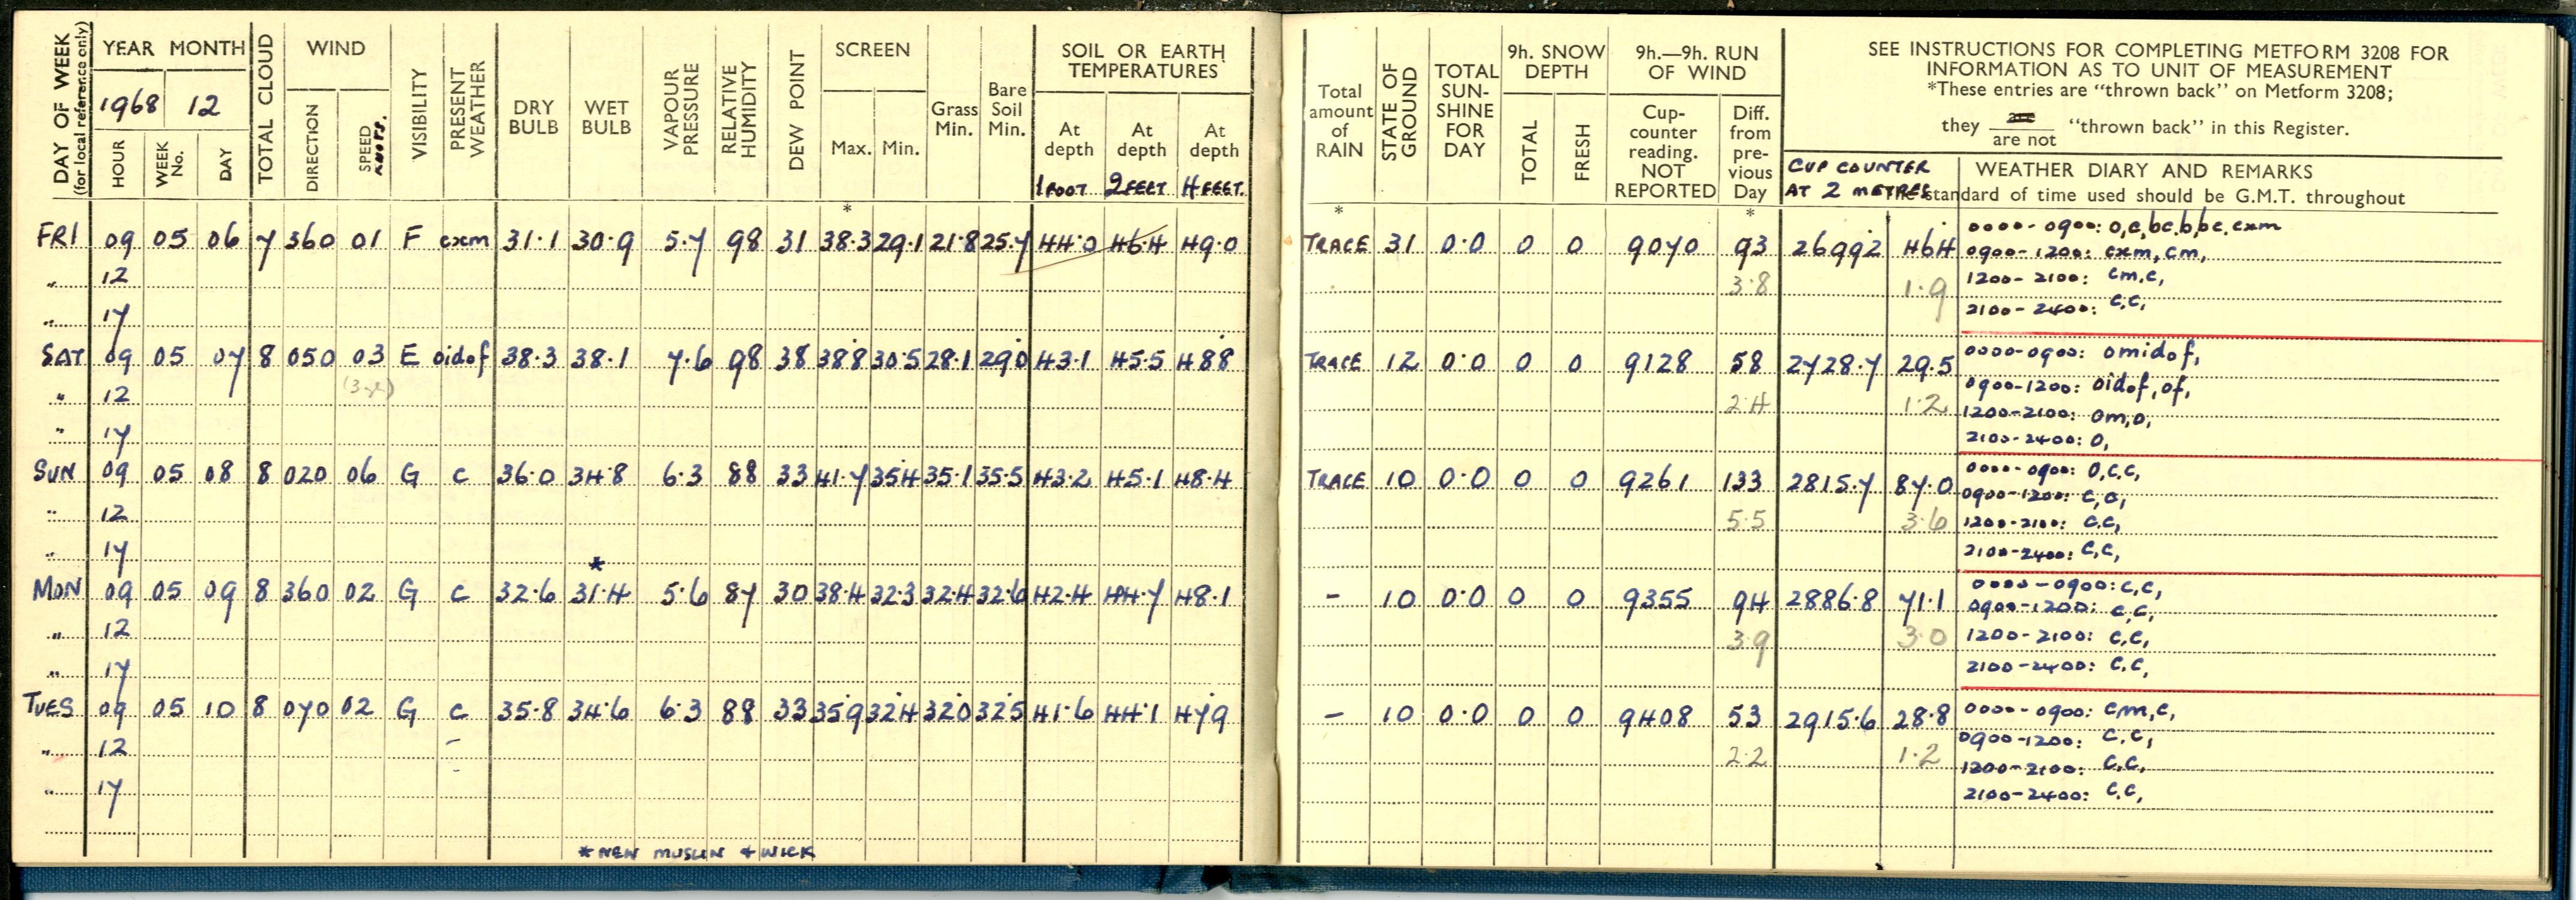 DAY OF WEEK (for local reference only)
YEAR MONTH
1968 12
HOUR WEEK No. DAY
TOTAL CLOUD
WIND
DIRECTION SPEED KNOTS.
VISIBILITY
PRESENT WEATHER
DRY BULB
WET BULB
VAPOUR PRESSURE
RELATIVE HUMIDITY
DEW POINT
SCREEN
Max. Min.
Grass Min.
Bare Soil Min.
SOIL OR EARTH TEMPERATURES
At depth 1 FOOT
At depth 2 FEET
At depth 4 FEET.
*
FRI 09 05 06 7 360 01 F cxm 31.1 30.9 5.7 98 31 38.3 29.1 21.8 25.7 44.0 46.4 49.0
" 12
" 17
SAT 09 05 07 8 050 03 E oidof 38.3 38.1 7.6 98 38 38.8 30.5 28.1 29.0 43.1 45.5 48.8
" 12
" 17
SUN 09 05 08 8 020 06 G c 36.0 34.8 6.3 88 33 41.7 35.4 35.1 35.5 43.2 45.1 48.4
" 12
" 17
*
MON 09 05 09 8 360 02 G c 32.6 31.4 5.6 87 30 38.4 32.3 32.4 32.6 42.4 44.7 48.1
" 12
" 17
TUES 09 05 10 8 070 02 G c 35.8 34.6 6.3 88 33 35.9 32.4 32.0 32.5 41.6 44.1 47.9
" 12
" 17
* NEW MUSLIN & WICK
Total amount of RAIN
STATE OF GROUND
TOTAL SUN-SHINE FOR DAY
9h. SNOW DEPTH
TOTAL FRESH
9h.—9h. RUN OF WIND
Cup-counter reading. NOT REPORTED
Diff. from pre-vious Day
SEE INSTRUCTIONS FOR COMPLETING METFORM 3208 FOR
INFORMATION AS TO UNIT OF MEASUREMENT
*These entries are "thrown back" on Metform 3208;
they are / are not "thrown back" in this Register.
CUP COUNTER AT 2 METRES
WEATHER DIARY AND REMARKS
The standard of time used should be G.M.T. throughout
* *
TRACE 31 0.0 0 0 9070 93 2699.2 46.4
3.8 1.9
0000-0900: o,c,bc,b,bc,cxm
0900-1200: cxm, cm,
1200-2100: cm,c,
2100-2400: c,c,
TRACE 12 0.0 0 0 9128 58 2728.7 29.5
2.4 1.2
0000-0900: omidof,
0900-1200: oidof, of,
1200-2100: om,o,
2100-2400: o,
TRACE 10 0.0 0 0 9261 133 2815.7 87.0
5.5 3.6
0000-0900: o,c,c,
0900-1200: c,c,
1200-2100: c,c,
2100-2400: c,c,
- 10 0.0 0 0 9355 94 2886.8 71.1
3.9 3.0
0000-0900: c,c,
0900-1200: c,c,
1200-2100: c,c,
2100-2400: c,c,
- 10 0.0 0 0 9408 53 2915.6 28.8
2.2 1.2
0000-0900: cm,c,
0900-1200: c,c,
1200-2100: c,c,
2100-2400: c,c,